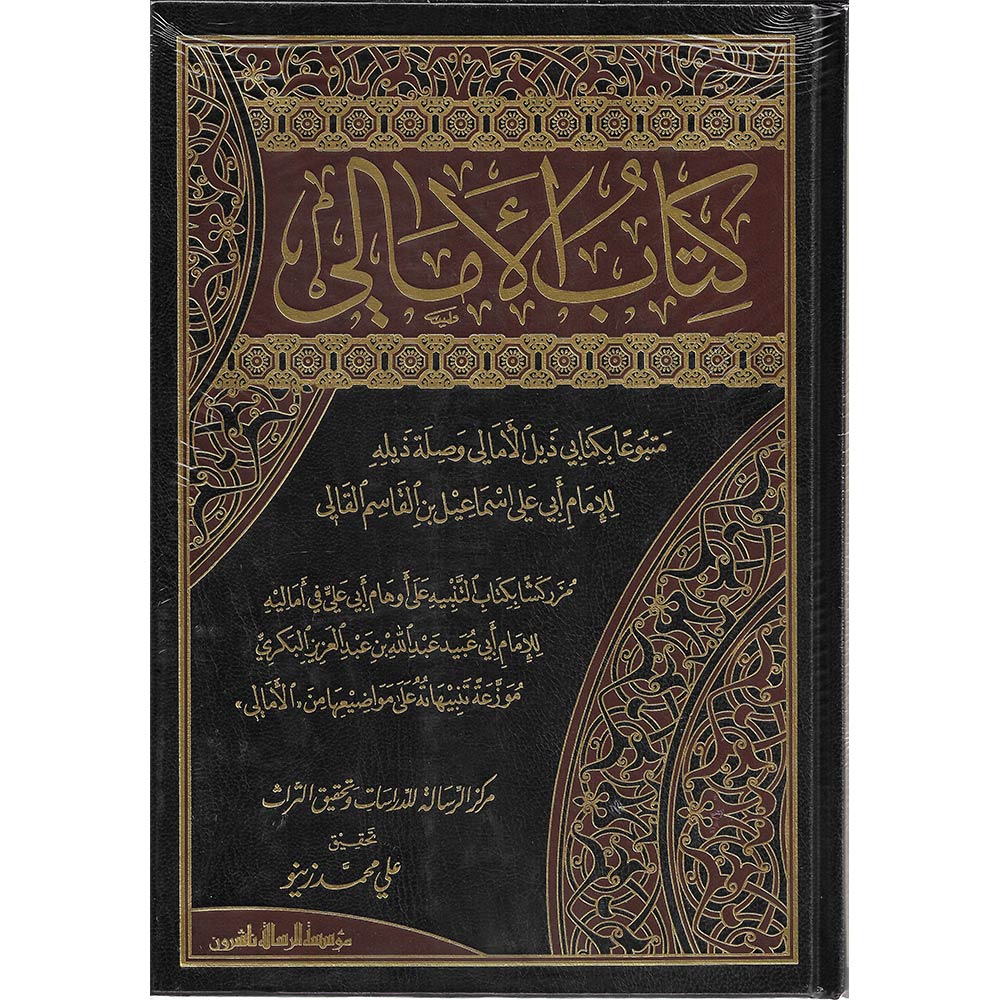 كِتَابُ الأَمَالِي
مَتبُوعًا بِكتَابي ذَيل الأَمالي وَصِلَة ذَيلِهِ
لِلإمَامِ أَبي عَلي اسْمَاعِيْل بنِ القَاسِمِ القَالي
مُزَركَشًا بِكتَاب التَّنْبيهِ عَلَى أَوهَام أَبي عَليٍّ في أَمَاليْهِ
لِلإمَامِ أَبي عُبَيد عَبْد اللهِ بْن عَبْد العَزيزِ البَكريِّ
مُوَزَّعَةً تَنبيْهَاتُهُ عَلَى مَوَاضِيْعِهَا مِنَ «الأَمَالي»
مركز الرسالة للدراسات وتحقيق التراث
تحقيق
علي محمَّد زينو
مؤسسة الرسالة ناشرون